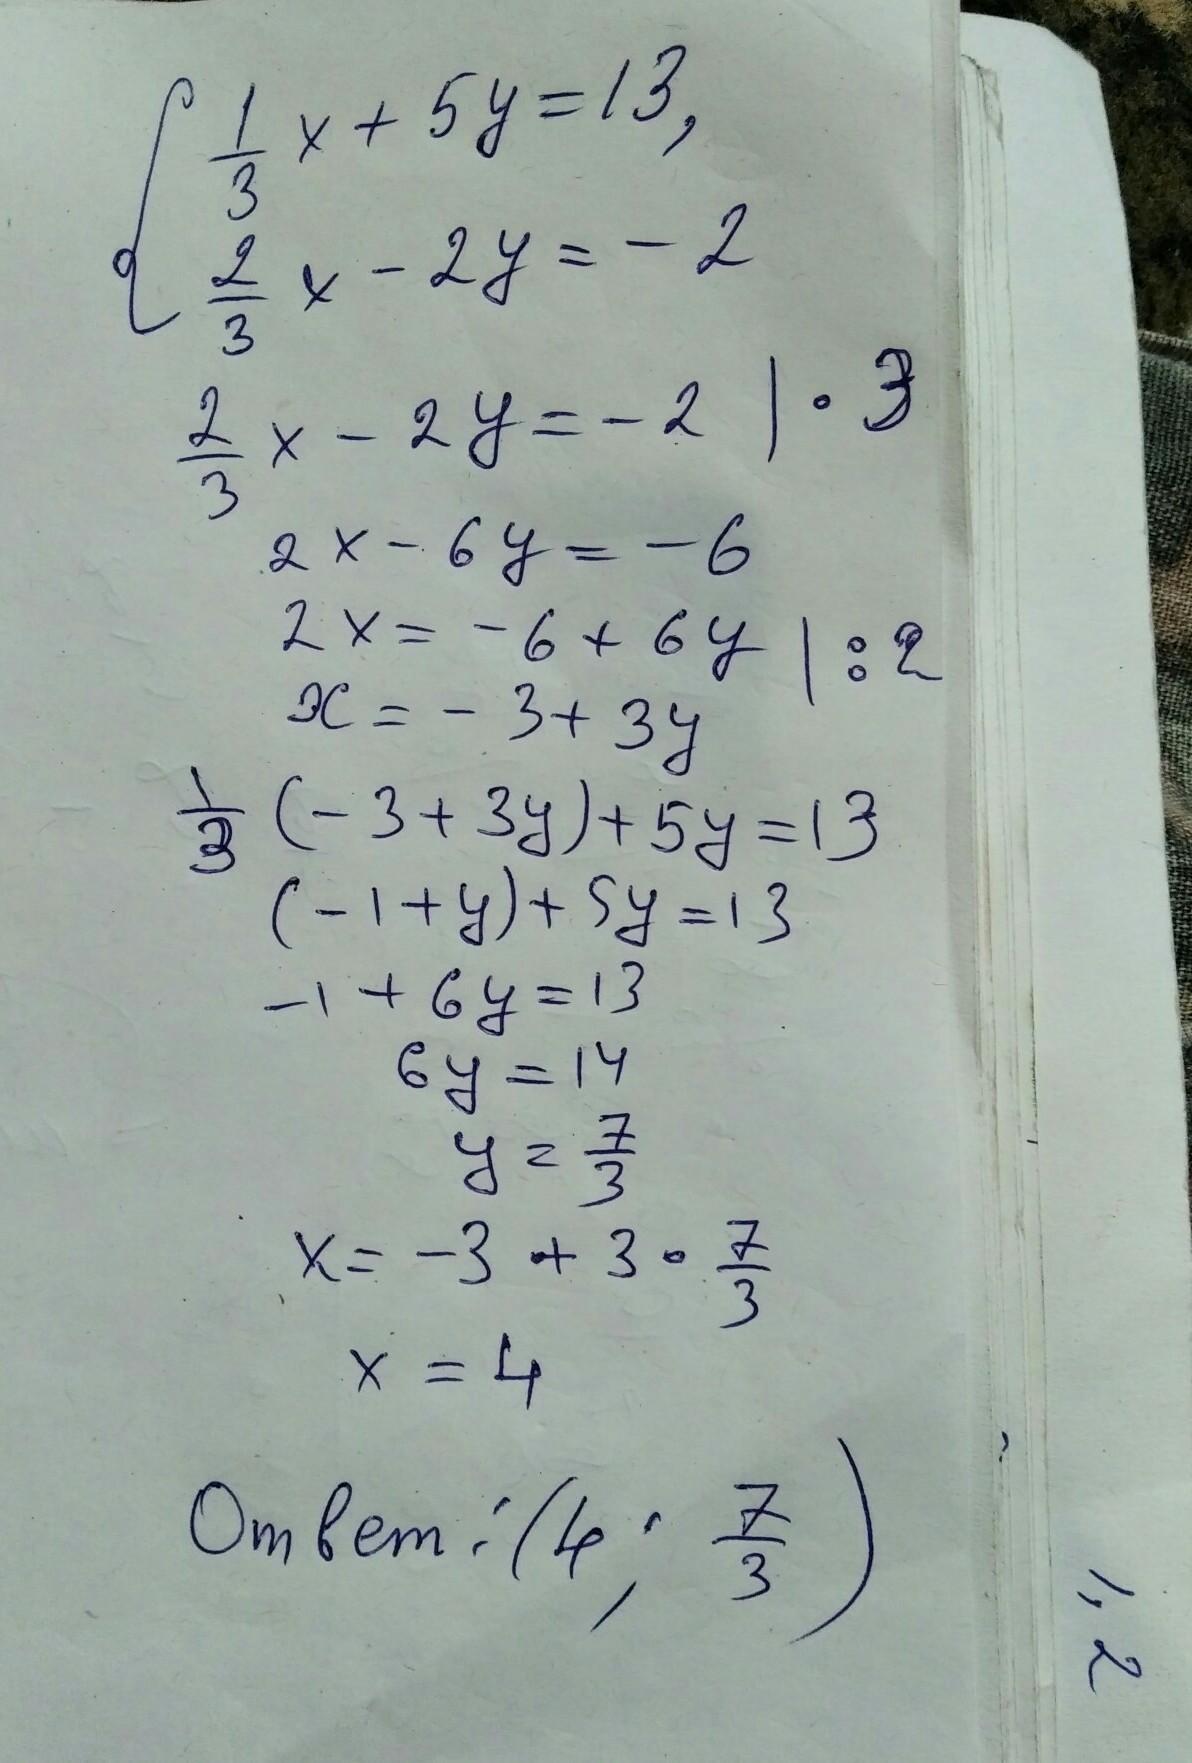 { 1/3 x + 5y = 13,
2/3 x - 2y = - 2
2/3 x - 2y = - 2 | · 3
2x - 6y = - 6
2x = - 6 + 6y | : 2
x = - 3 + 3y
1/3 (- 3 + 3y) + 5y = 13
(- 1 + y) + 5y = 13
-1 + 6y = 13
6y = 14
y = 7/3
x = -3 + 3 · 7/3
x = 4
Ответ: (4; 7/3)
1,2